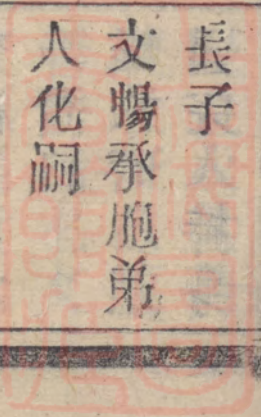 長子
文暢承胞弟
人化嗣